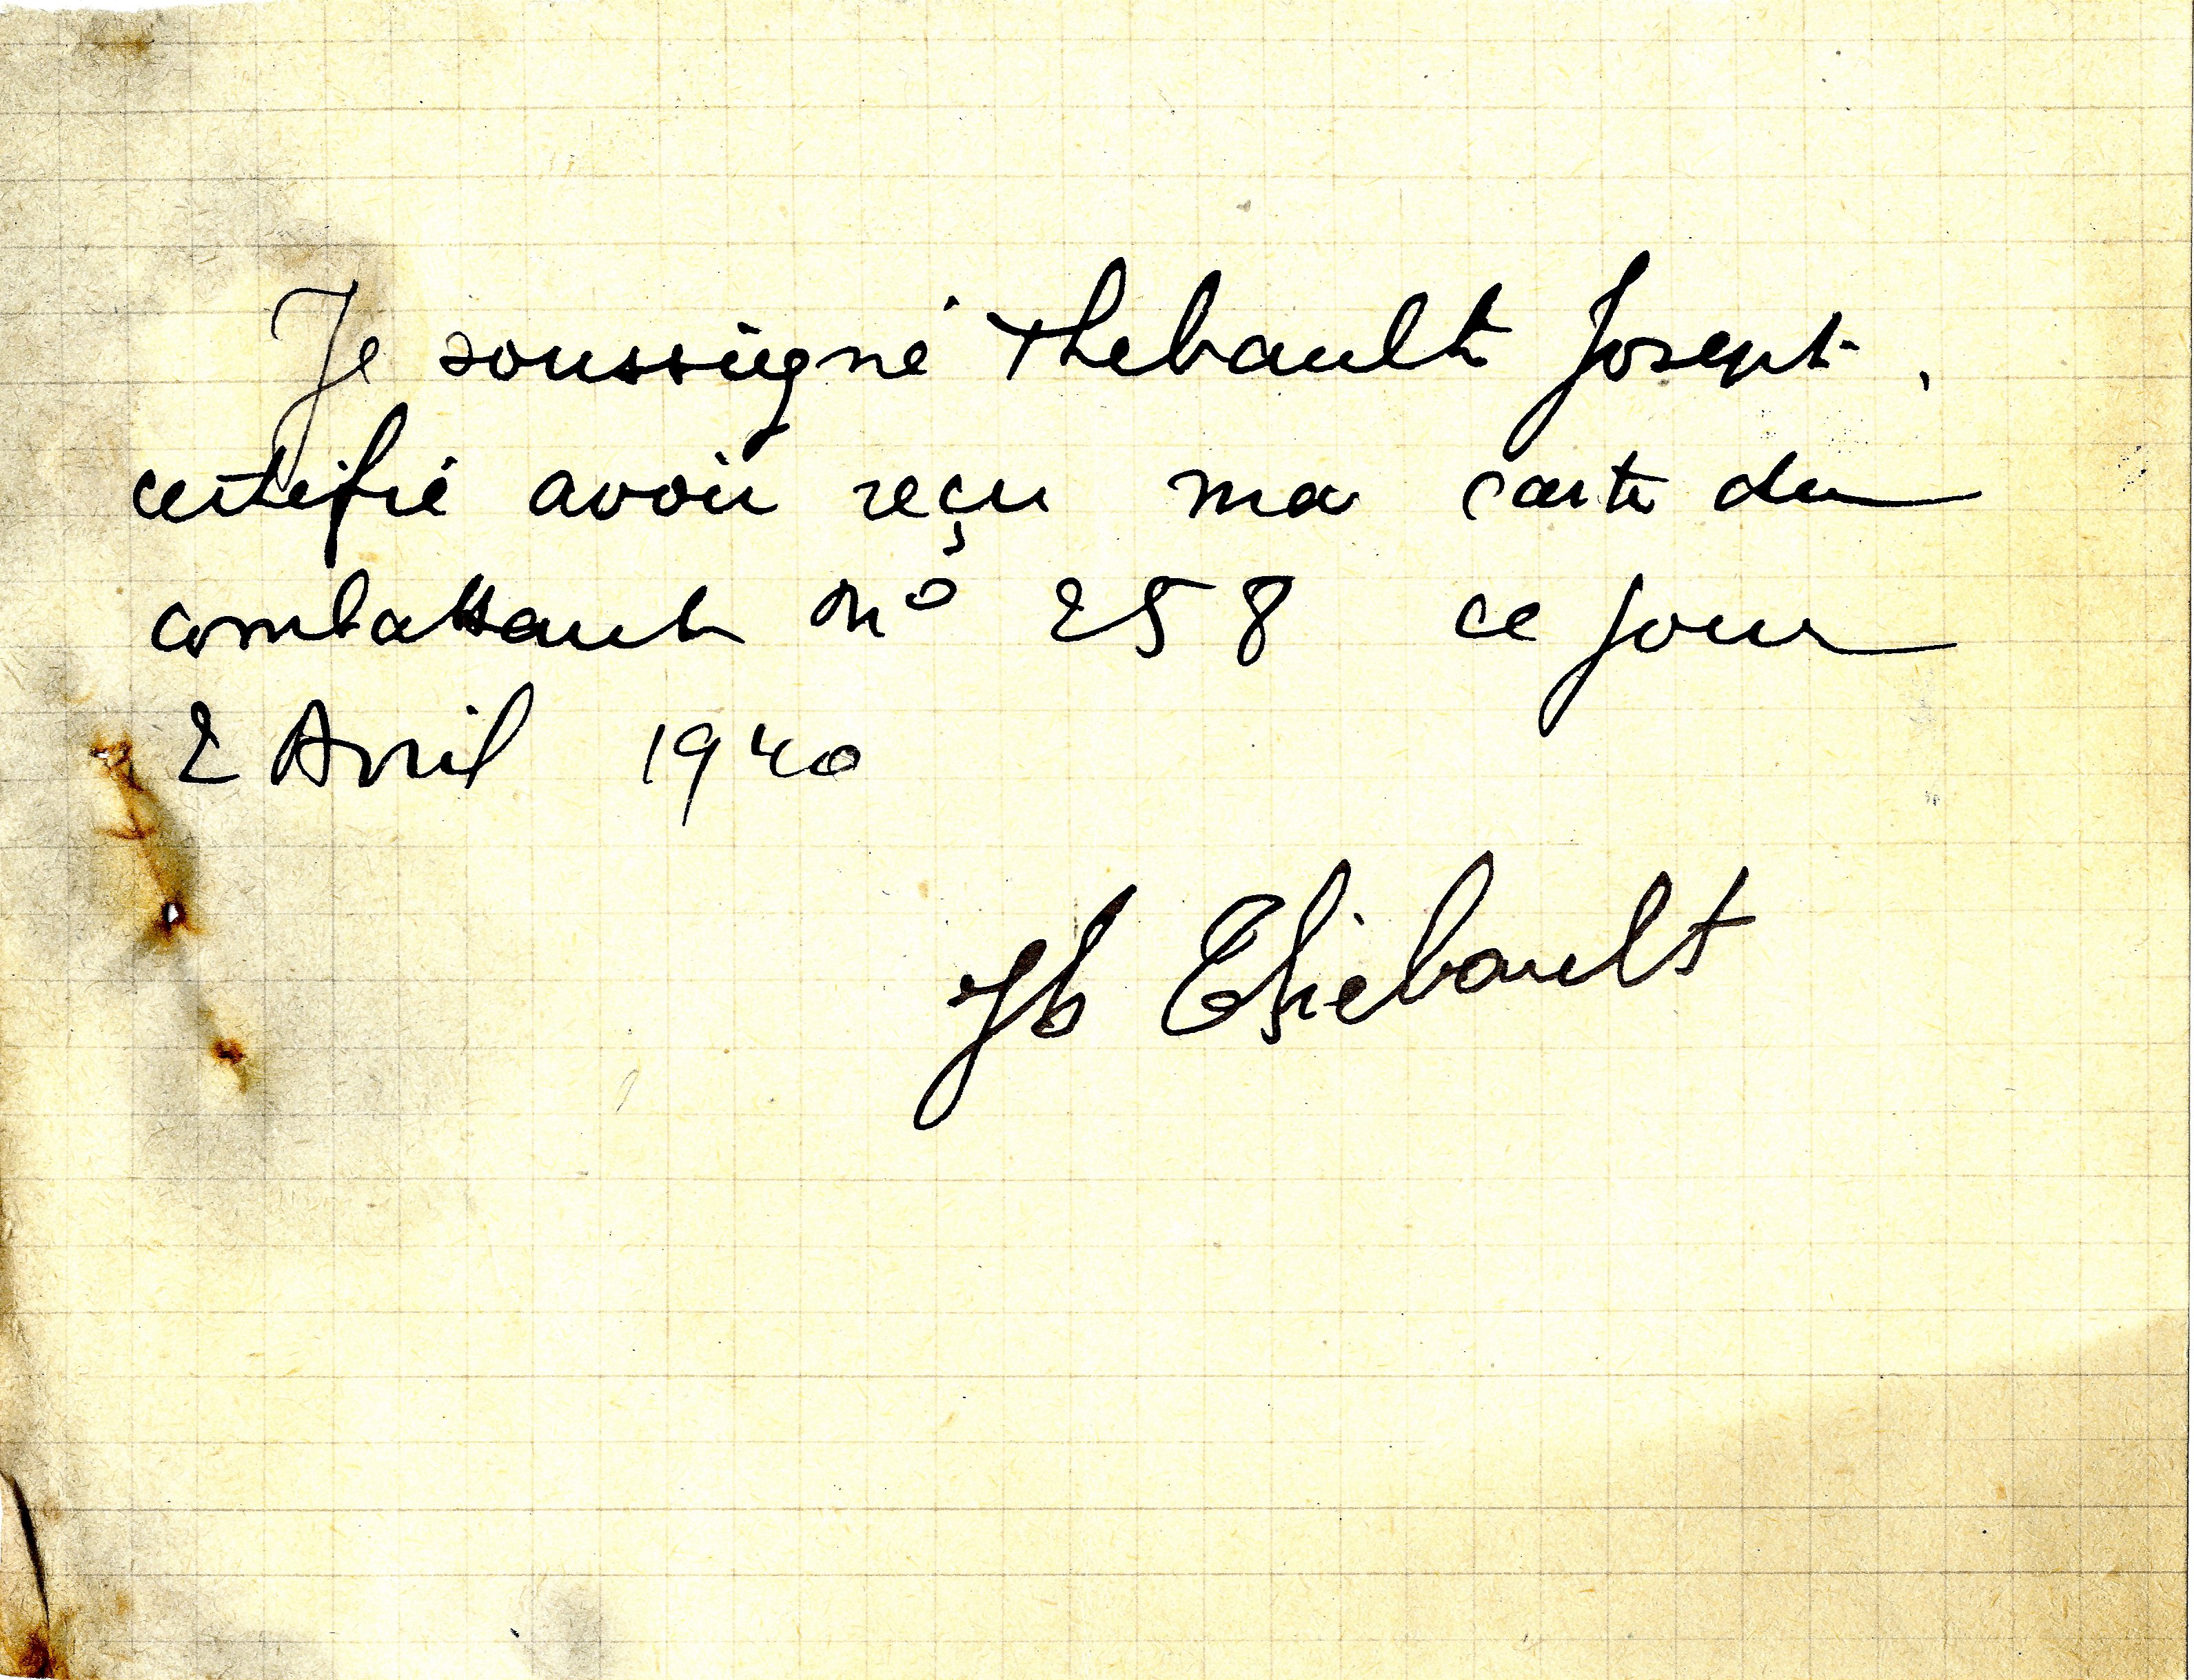 Je soussigné Thebault Joseph.
certifié avoir reçu ma carte du
combattant n° 258 ce jour
2 Avril 1940
Jh Thébault